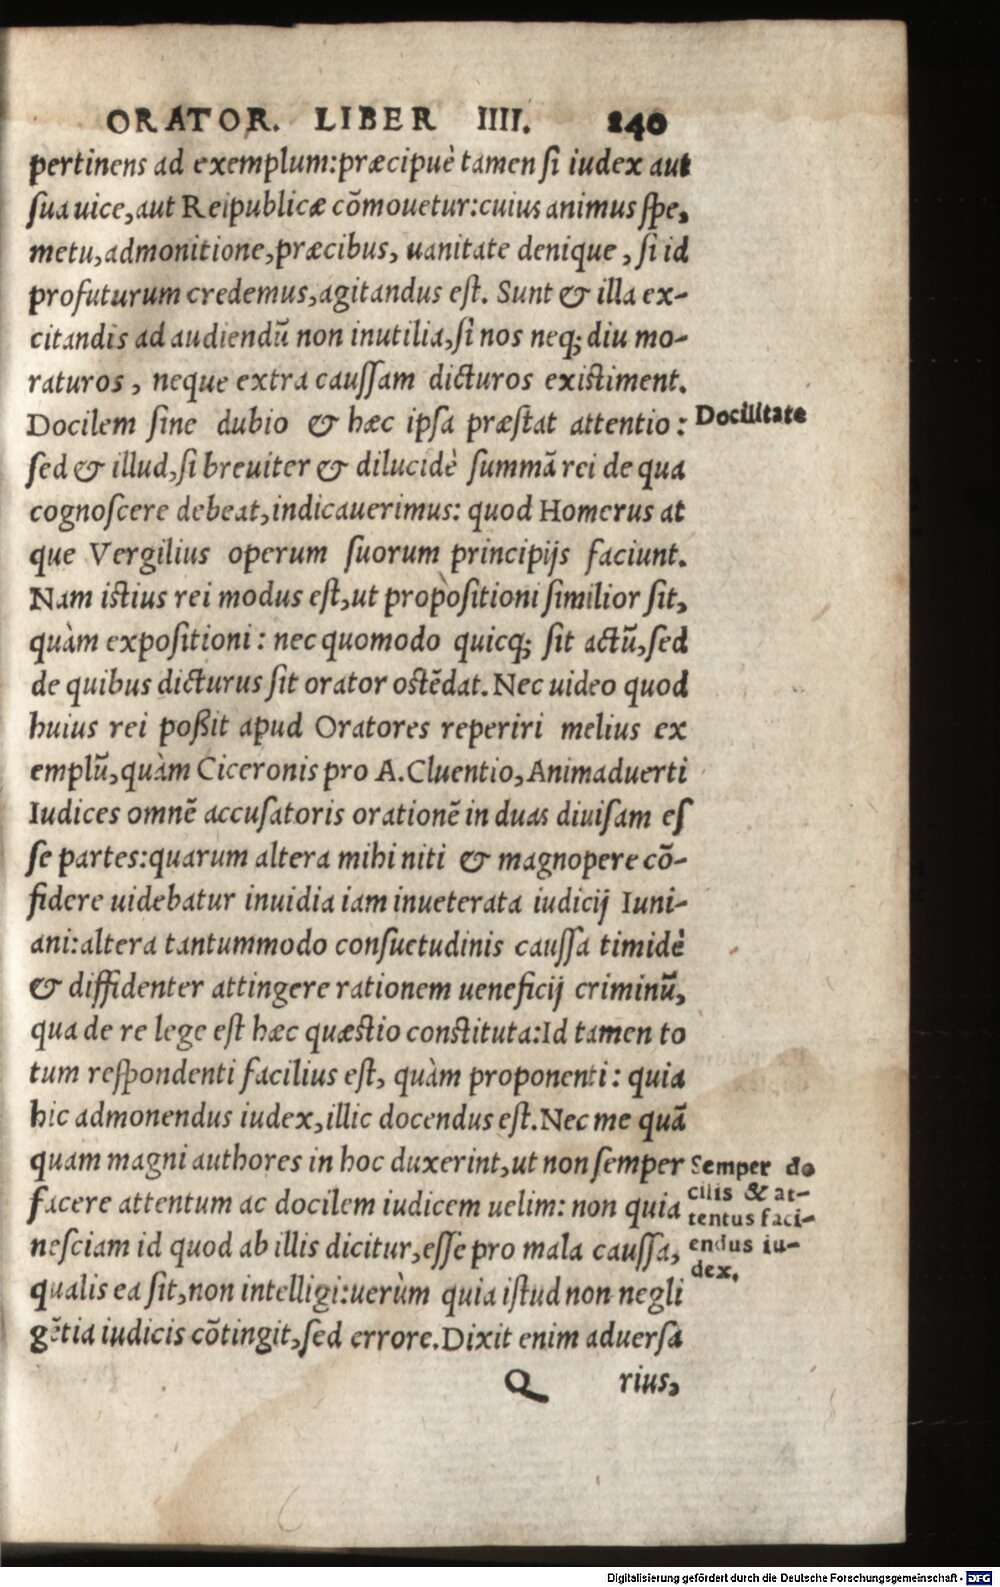 ORATOR. LIBER IIII. 240
pertinens ad exemplum:præcipuè tamen ſi iudex aut
ſua uice,aut Reipublicæ cõmouetur:cuius animus ſpe,
metu,admonitione,præcibus, uanitate denique, ſi id
profuturum credemus,agitandus eſt. Sunt & illa ex-
citandis ad audiendũ non inutilia,ſi nos neq; diu mo-
raturos, neque extra cauſſam dicturos existiment.
Docilem ſine dubio & hæc ipſa præſtat attentio: Docilitate
ſed & illud,ſi breuiter & dilucidè ſummã rei de qua
cognoſcere debeat,indicauerimus: quod Homerus at
que Vergilius operum ſuorum principijs faciunt.
Nam istius rei modus eſt,ut propòſitioni ſimilior ſit,
quàm expoſitioni: nec quomodo quicq; ſit actũ,ſed
de quibus dicturus ſit orator ostẽdat. Nec uideo quod
huius rei poßit apud Oratores reperiri melius ex
emplũ,quàm Ciceronis pro A. Cluentio, Animaduerti
Iudices omnẽ accuſatoris orationẽ in duas diuiſam eſ
ſe partes:quarum altera mihi niti & magnopere cõ-
fidere uidebatur inuidia iam inueterata iudicij Iuni-
ani:altera tantummodo conſuetudinis cauſſa timidè
& diffidenter attingere rationem ueneficij criminũ,
qua de re lege eſt hæc quæstio constituta:Id tamen to
tum reſpondenti facilius eſt, quàm proponenti: quia
hic admonendus iudex,illic docendus eſt. Nec me quã
quam magni authores in hoc duxerint,ut non ſemper
facere attentum ac docilem iudicem uelim: non quia
neſciam id quod ab illis dicitur,eſſe pro mala cauſſa,
qualis ea ſit,non intelligi:uerùm quia iſtud non negli
gẽtia iudicis cõtingit,ſed errore. Dixit enim aduerſa
Semper do
cilis & at-
tentus faci-
endus iu-
dex.
Q rius,
Digitalisierung gefördert durch die Deutsche Forschungsgemeinschaft - DFG